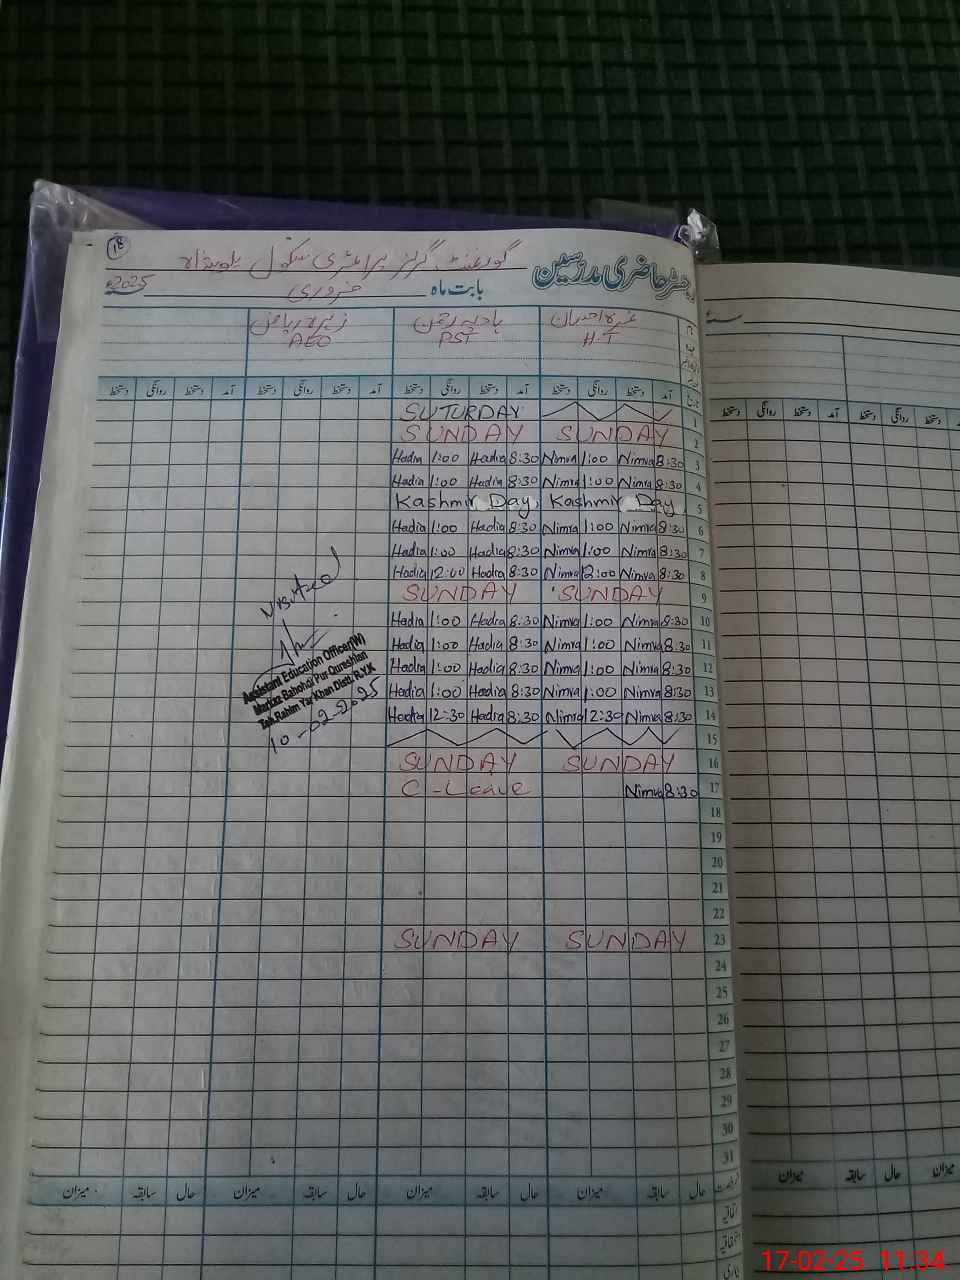 18
گورنمنٹ گرلز پرائمری سکول
رجسٹر حاضری مدرسین
بابت ماہ فروری 2025
H.T PST AEO
آمد دستخط روانگی دستخط آمد دستخط روانگی دستخط آمد دستخط روانگی دستخط آمد دستخط روانگی دستخط
SUTURDAY 1
SUNDAY SUNDAY 2
Hadia 1:00 Hadia 8:30 Nimra 1:00 Nimra 8:30 3
Hadia 1:00 Hadia 8:30 Nimra 1:00 Nimra 8:30 4
Kashmir Day Kashmir Day 5
Hadia 1:00 Hadia 8:30 Nimra 1:00 Nimra 8:30 6
Hadia 1:00 Hadia 8:30 Nimra 1:00 Nimra 8:30 7
Hadia 12:00 Hadia 8:30 Nimra 12:00 Nimra 8:30 8
SUNDAY SUNDAY 9
Hadia 1:00 Hadia 8:30 Nimra 1:00 Nimra 8:30 10
Hadia 1:00 Hadia 8:30 Nimra 1:00 Nimra 8:30 11
Hadia 1:00 Hadia 8:30 Nimra 1:00 Nimra 8:30 12
Hadia 1:00 Hadia 8:30 Nimra 1:00 Nimra 8:30 13
Hadia 12:30 Hadia 8:30 Nimra 12:30 Nimra 8:30 14
15
SUNDAY SUNDAY 16
C-Leave Nimra 8:30 17
18
19
20
21
22
SUNDAY SUNDAY 23
24
25
26
27
28
29
30
31
حال سابقہ میزان حال سابقہ میزان حال سابقہ میزان حال سابقہ میزان
Visited
Assistant Education Officer(W)
Markaz Bahodi Pur Qureshian
Teh.Rahim Yar Khan Distt: R.Y.K
10-02-2025
دستخط روانگی دستخط آمد دستخط روانگی دستخط
میزان سابقہ حال میزان
17-02-25 11:34